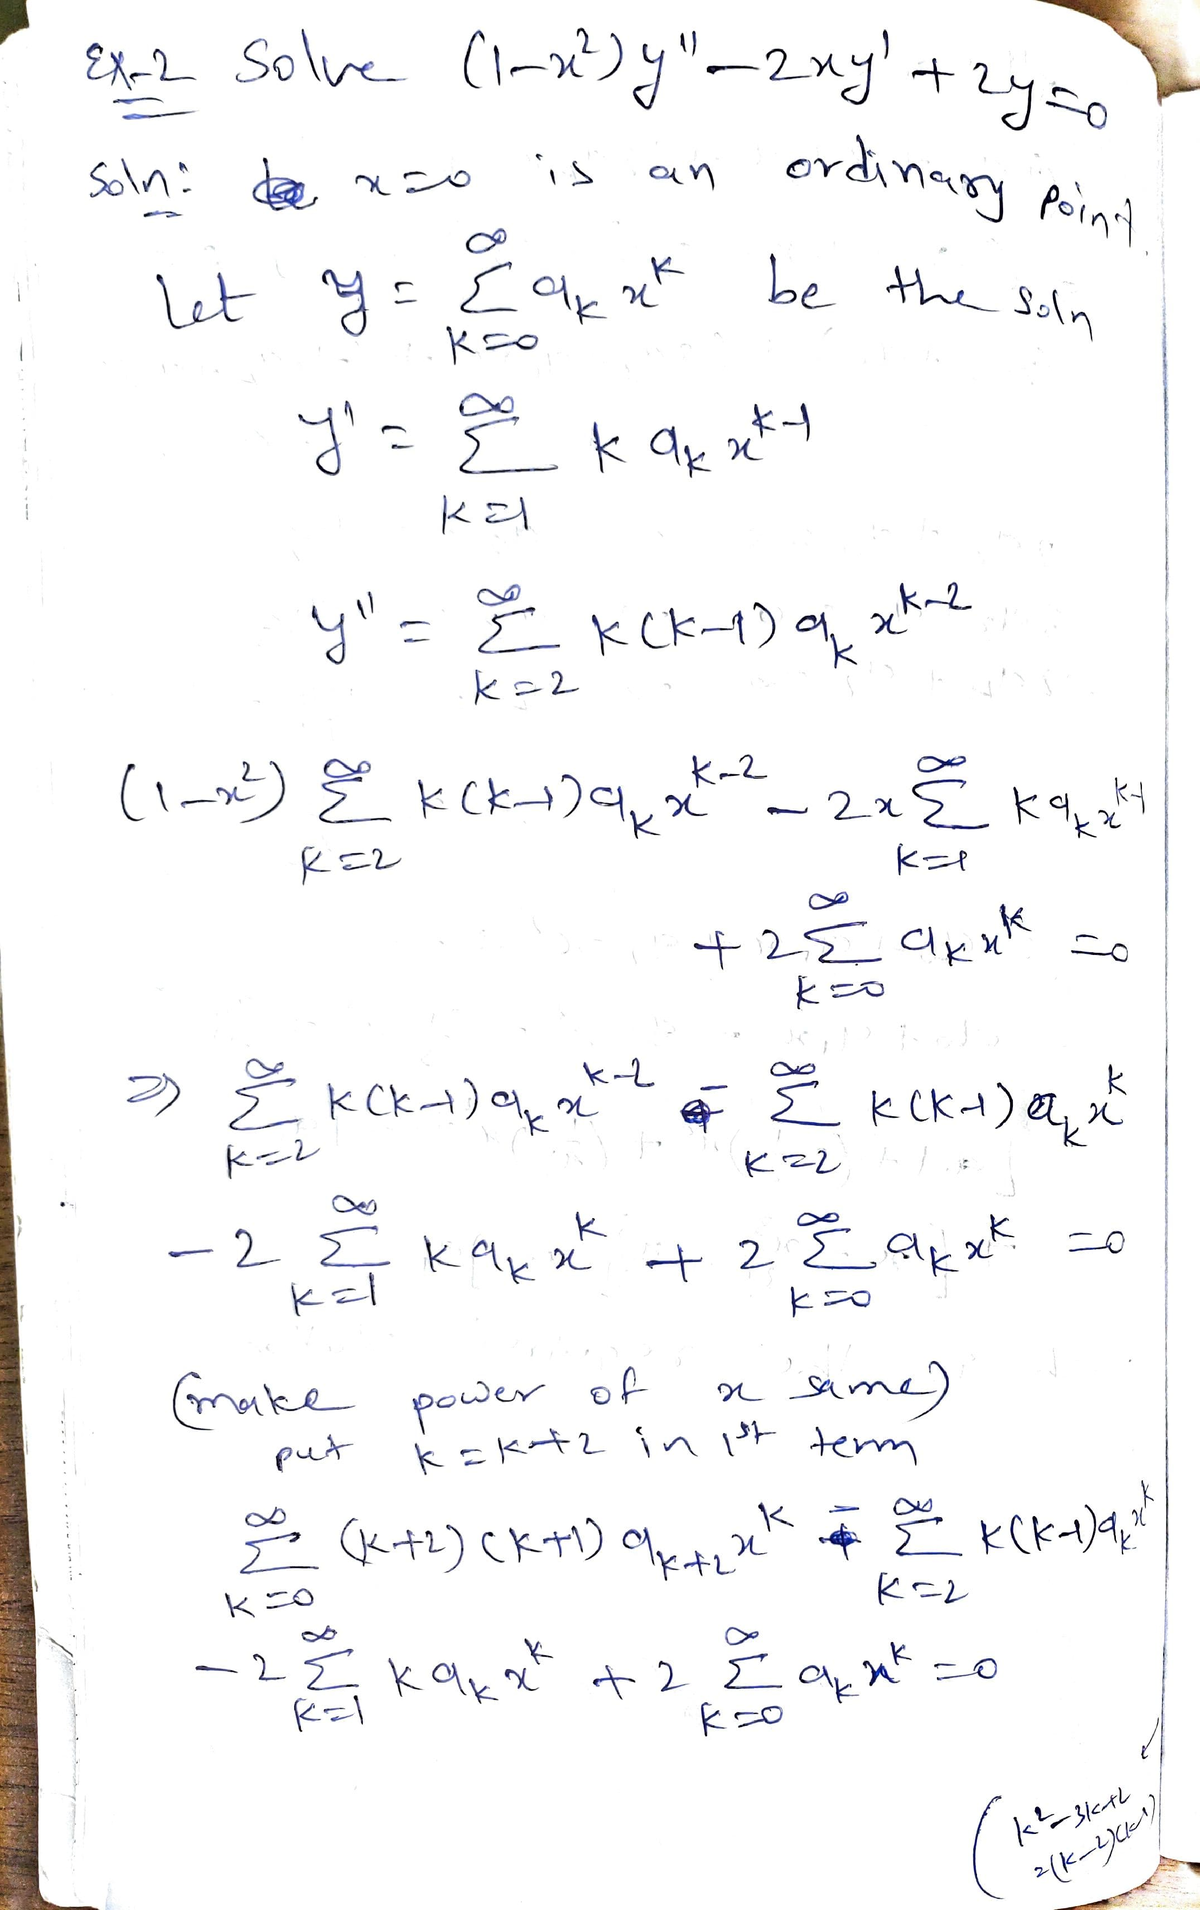 Ex-2 Solve (1-x²)y''-2xy'+2y=0
Soln: x=0 is an ordinary point.
Let y = ∞Σk=0 a_k x^k be the soln
y' = ∞Σk=1 k a_k x^k-1
y'' = ∞Σk=2 k(k-1) a_k x^k-2
(1-x²) ∞Σk=2 k(k-1) a_k x^k-2 - 2x ∞Σk=1 k a_k x^k-1
+ 2 ∞Σk=0 a_k x^k =0
⇒ ∞Σk=2 k(k-1) a_k x^k-2 - ∞Σk=2 k(k-1) a_k x^k
- 2 ∞Σk=1 k a_k x^k + 2 ∞Σk=0 a_k x^k =0
(make power of x same)
put k = k+2 in 1st term
∞Σk=0 (k+2)(k+1) a_k+2 x^k - ∞Σk=2 k(k-1) a_k x^k
- 2 ∞Σk=1 k a_k x^k + 2 ∞Σk=0 a_k x^k =0
(k²-3k+2
=(k-2)(k-1)